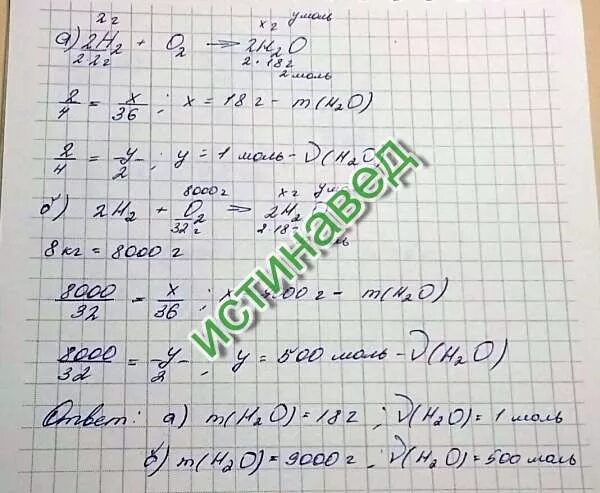 2 г x г y моль
а) 2H₂ + O₂ → 2H₂O
2·2г 2·18г
2 моль
2/4 = x/36 ; x = 18 г - m(H₂O)
2/4 = y/2 ; y = 1 моль - ν(H₂O
8000 г x г
б) 2H₂ + O₂ ⇒ 2H₂
32 г 2·18
8 кг = 8000 г
8000/32 = x/36 ; x 00 г - m(H₂O)
8000/32 = y/2 ; y = 500 моль - ν(H₂O)
Ответ: а) m(H₂O) = 18 г ; ν(H₂O) = 1 моль
б) m(H₂O) = 9000 г ; ν(H₂O) = 500 моль
истинавед